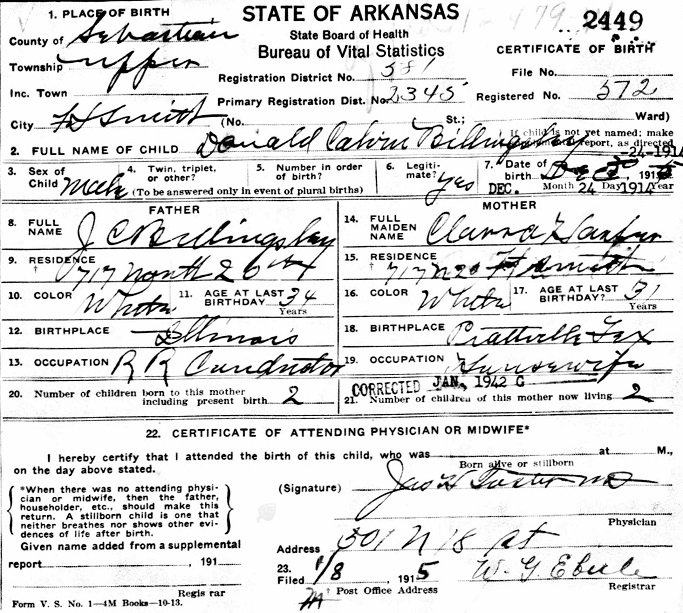 1. PLACE OF BIRTH
STATE OF ARKANSAS
State Board of Health
Bureau of Vital Statistics
2449
CERTIFICATE OF BIRTH
County of Sebastian
Township Upper
Inc. Town
City Ft Smith (No. St.; Ward)
Registration District No. 581
File No.
Primary Registration Dist. No. 2345
Registered No. 572
If child is not yet named; make supplemental report, as directed
2. FULL NAME OF CHILD Donald Calvin Billingsley
-24-1914
3. Sex of Child Male
4. Twin, triplet, or other?
5. Number in order of birth?
(To be answered only in event of plural births)
6. Legitimate? Yes
7. Date of birth Dec 191
DEC. 24 1914
Month Day Year
FATHER
MOTHER
8. FULL NAME J C Billingsley
14. FULL MAIDEN NAME Clarra
9. RESIDENCE 717 North 26 St
15. RESIDENCE 717 N 26 Ft Smith
10. COLOR White
11. AGE AT LAST BIRTHDAY 34 Years
16. COLOR White
17. AGE AT LAST BIRTHDAY? 31 Years
12. BIRTHPLACE Illinois
18. BIRTHPLACE Prattville Tex
13. OCCUPATION R R Conductor
19. OCCUPATION Housewife
CORRECTED JAN. 1942 G
20. Number of children born to this mother including present birth 2
21. Number of children of this mother now living 2
22. CERTIFICATE OF ATTENDING PHYSICIAN OR MIDWIFE*
I hereby certify that I attended the birth of this child, who was at M.,
Born alive or stillborn
on the day above stated.
*When there was no attending physician or midwife, then the father, householder, etc., should make this return. A stillborn child is one that neither breathes nor shows other evidences of life after birth.
(Signature) Jas H Foster MD
Physician
Given name added from a supplemental report , 191
Regis rar
Address 501 N 18 St
23. Filed 1/8 1915 W. G. Eberle
Registrar
† Post Office Address
Form V. S. No. 1—4M Books—10-13.